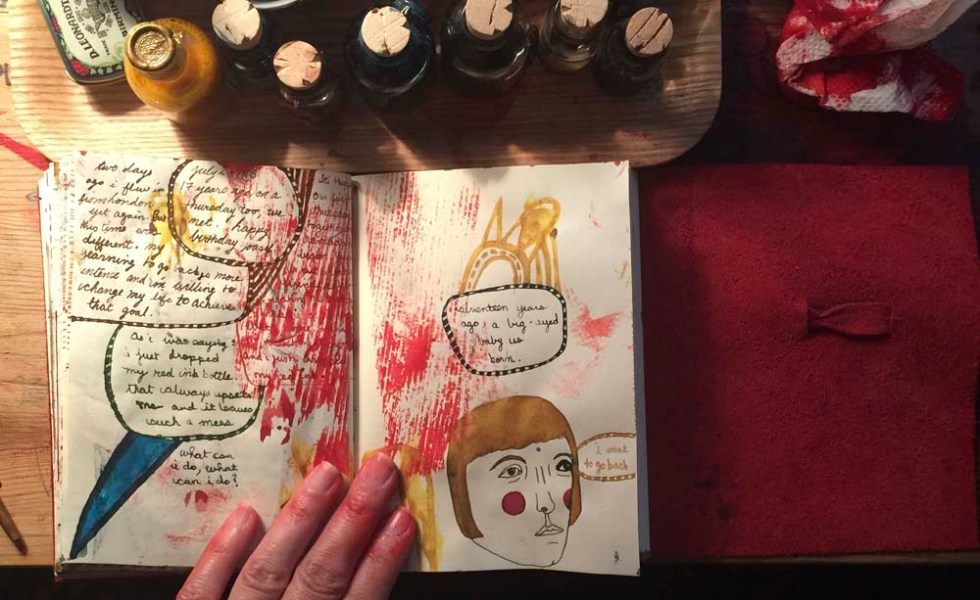 D. LEONARDT
two days
ago i flew in
from london
yet again. But
this time was
different. my
yearning to go back is more
intense and i'm willing to
change my life to achieve
that goal.
july
17 years ago, on a
thursday too, we
met. happy
birthday
as i was saying
i just dropped
my red ink bottle.
that always upsets
me and it leaves
such a mess
what can
i do, what
can i do?
seventeen years
ago, a big-eyed
baby was
born.
i want
to go back